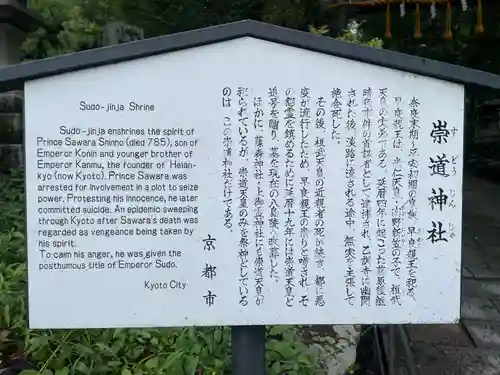 Sudo-jinja Shrine
Sudo-jinja enshrines the spirit of
Prince Sawara Shinno (died 785), son of
Emperor Konin and younger brother of
Emperor Kanmu, the founder of Heian-
kyo (now Kyoto). Prince Sawara was
arrested for involvement in a plot to seize
power. Protesting his innocence, he later
committed suicide. An epidemic sweeping
through Kyoto after Sawara's death was
regarded as vengeance being taken by
his spirit.
To calm his anger, he was given the
posthumous title of Emperor Sudo.
Kyoto City
崇道神社
すどうじんじゃ
奈良末期、平安初期の皇族、早良親王を祀る。
早良親王は、光仁天皇と高野新笠の子で、桓武
天皇の弟である。延暦四年に起こった藤原種継
暗殺事件の首謀者として逮捕され、乙訓寺に幽閉
された後、淡路に流される途中、無実を主張して
絶食死した。
その後、桓武天皇の近親者の死が続き、都に悪
疫が流行したため、早良親王の祟りと噂され、そ
の怨霊を鎮めるために延暦十九年には崇道天皇と
追号を贈り、墓を現在の八島陵へ改葬した。
ほかに、藤森神社や上御霊神社にも崇道天皇が
祀られているが、崇道天皇のみを祭神としている
のは、この崇道神社だけである。
京都市